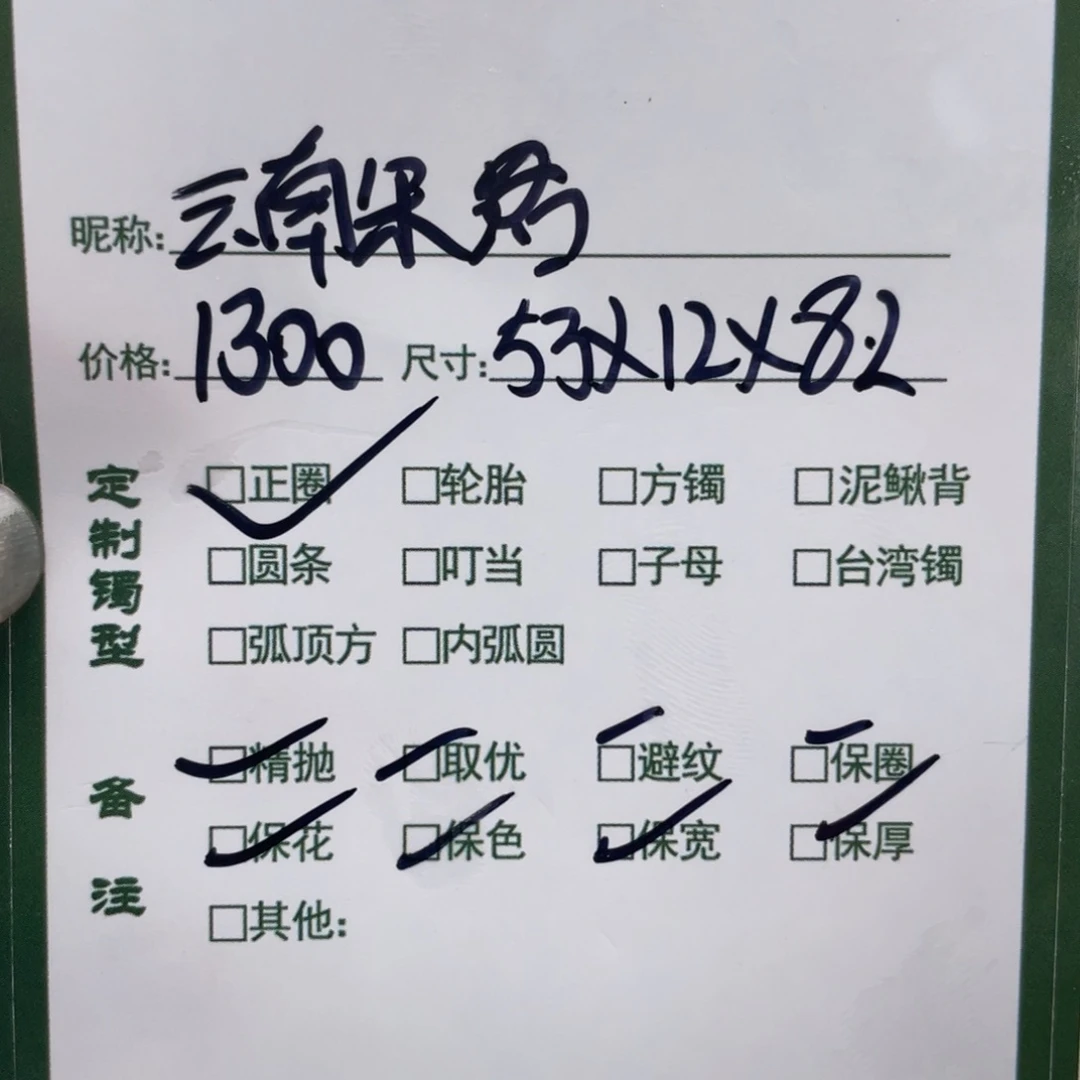 昵称:云南保
价格:1300 尺寸:53X12X8.2
定制镯型
□正圈 □轮胎 □方镯 □泥鳅背
□圆条 □叮当 □子母 □台湾镯
□弧顶方 □内弧圆
备注
□精抛 □取优 □避纹 □保圈
□保花 □保色 □保宽 □保厚
□其他: